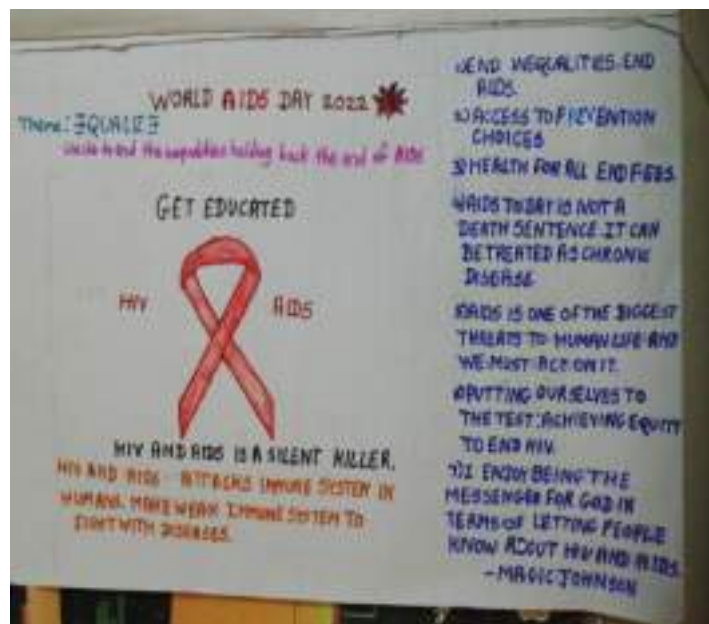 WORLD AIDS DAY 2022
Theme: EQUALIZE
Unite to end the inequalities holding back the end of AIDS
GET EDUCATED
HIV AIDS
HIV AND AIDS IS A SILENT KILLER.
HIV AND AIDS - ATTACKS IMMUNE SYSTEM IN
HUMANS. MAKE WEAK IMMUNE SYSTEM TO
FIGHT WITH DISEASES.
1) END INEQUALITIES. END
AIDS.
2) ACCESS TO PREVENTION
CHOICES
3) HEALTH FOR ALL END FEES.
4) AIDS TODAY IS NOT A
DEATH SENTENCE. IT CAN
BE TREATED AS CHRONIC
DISEASE
5) AIDS IS ONE OF THE BIGGEST
THREATS TO HUMAN LIFE AND
WE MUST ACT ON IT.
6) PUTTING OURSELVES TO
THE TEST: ACHIEVING EQUITY
TO END HIV.
7) I ENJOY BEING THE
MESSENGER FOR GOD IN
TERMS OF LETTING PEOPLE
KNOW ABOUT HIV AND AIDS.
- MAGIC JOHNSON